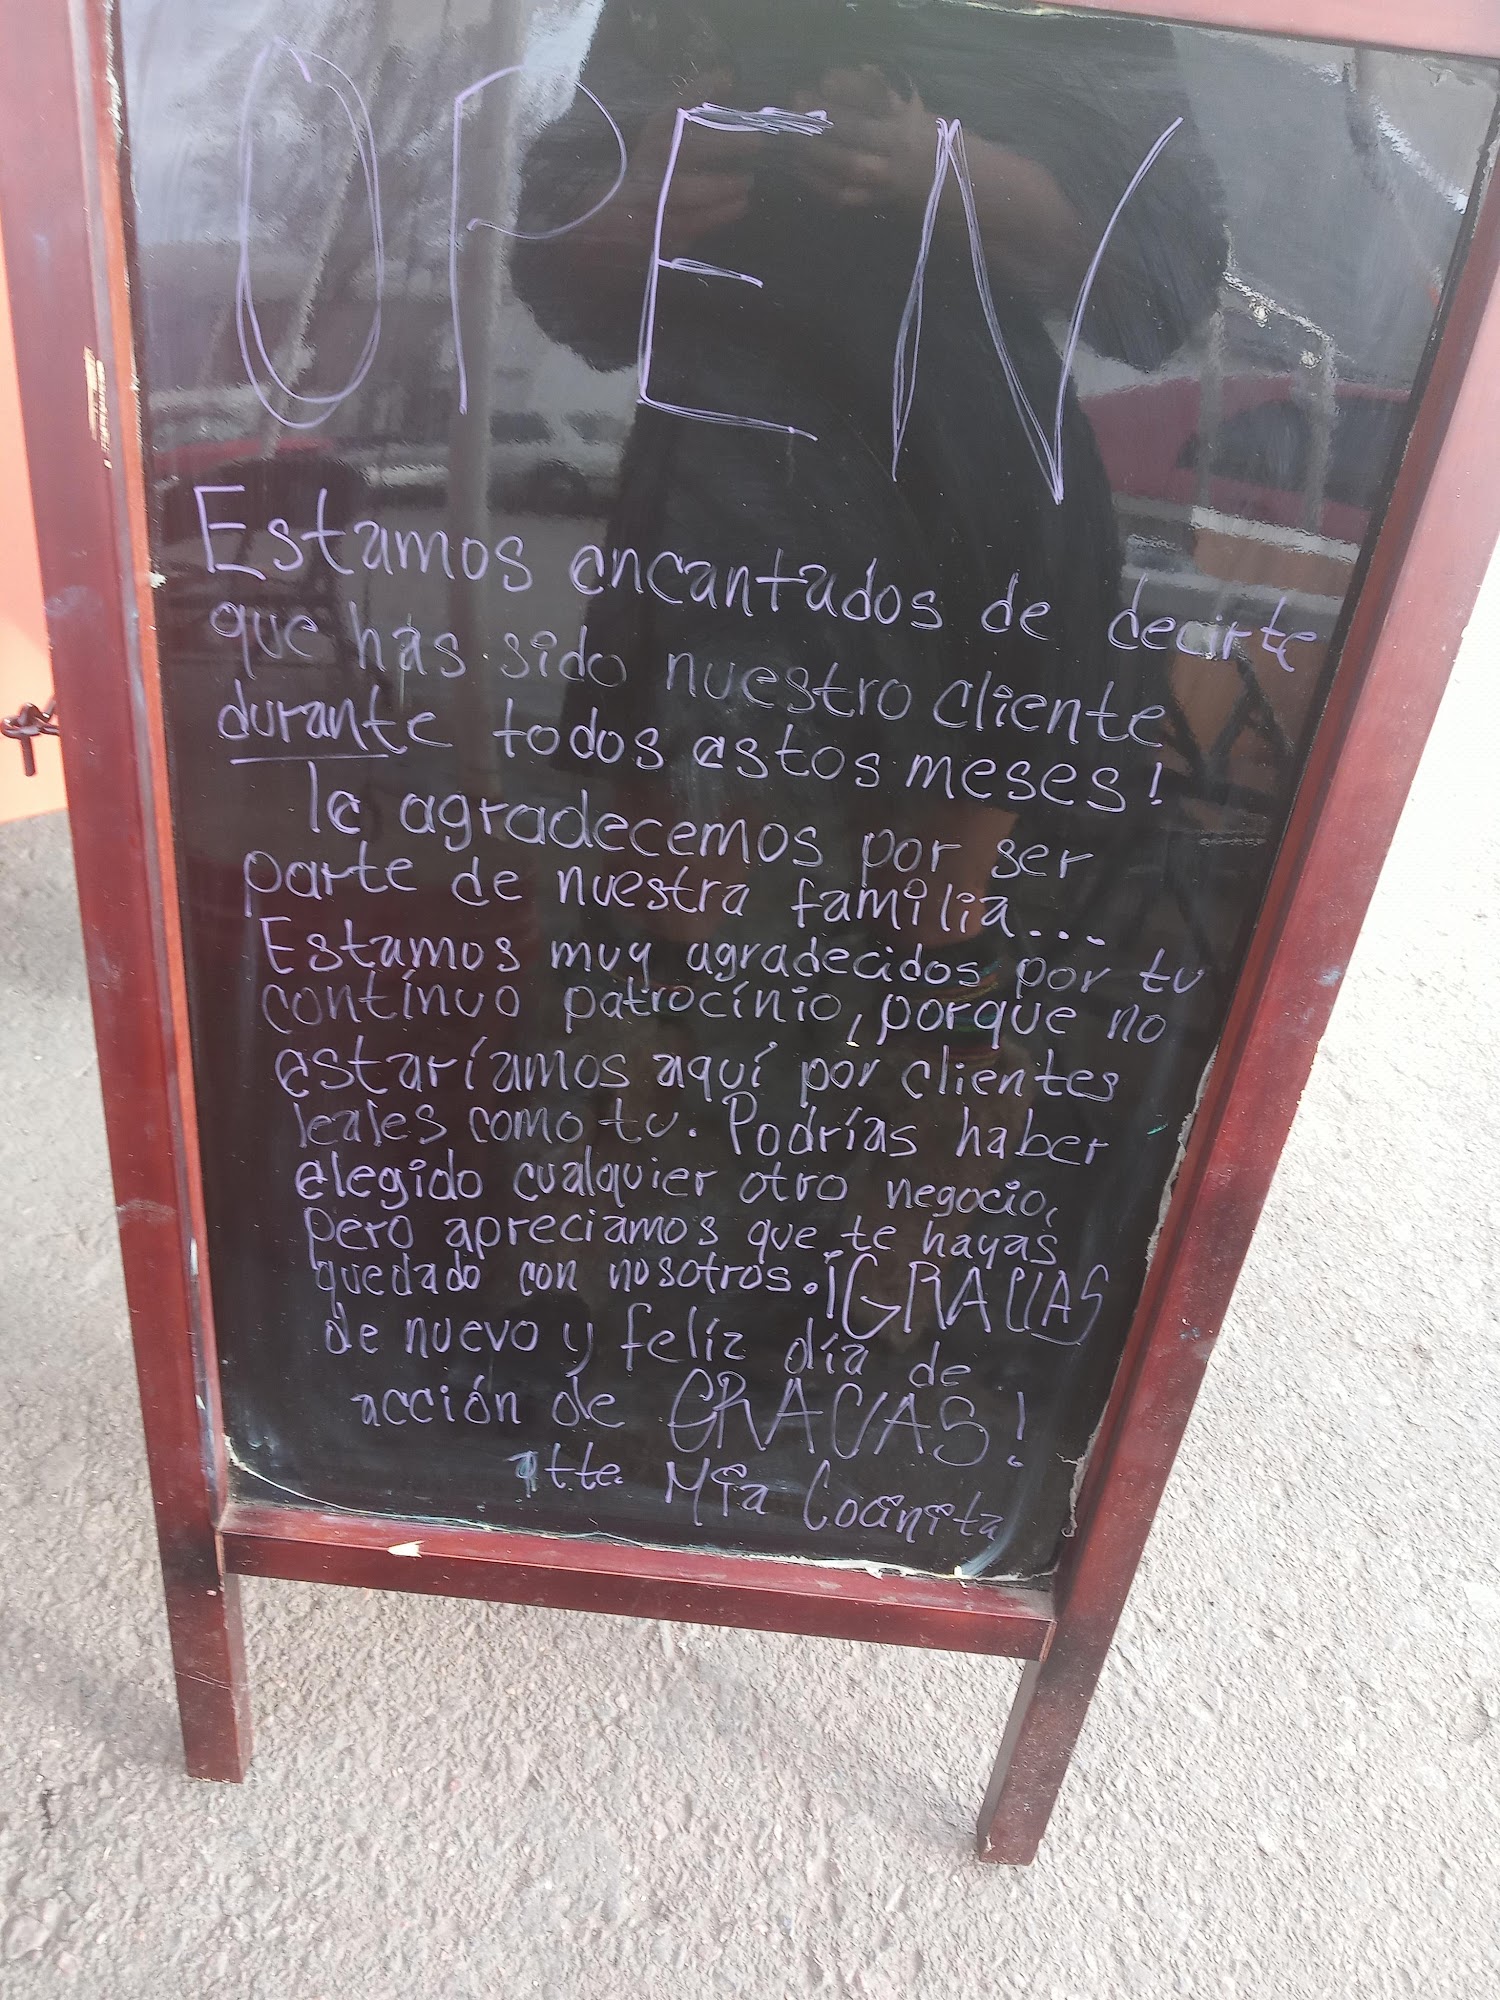 OPEN
Estamos encantados de decirte
que has sido nuestro cliente
durante todos estos meses!
le agradecemos por ser
parte de nuestra familia...
Estamos muy agradecidos por tu
contínuo patrocínio, porque no
estaríamos aquí por clientes
leales como tu. Podrías haber
elegido cualquier otro negocio,
pero apreciamos que te hayas
quedado con nosotros. ¡GRACIAS
de nuevo y feliz día de
acción de GRACIAS!
atte. Mia Cocinita